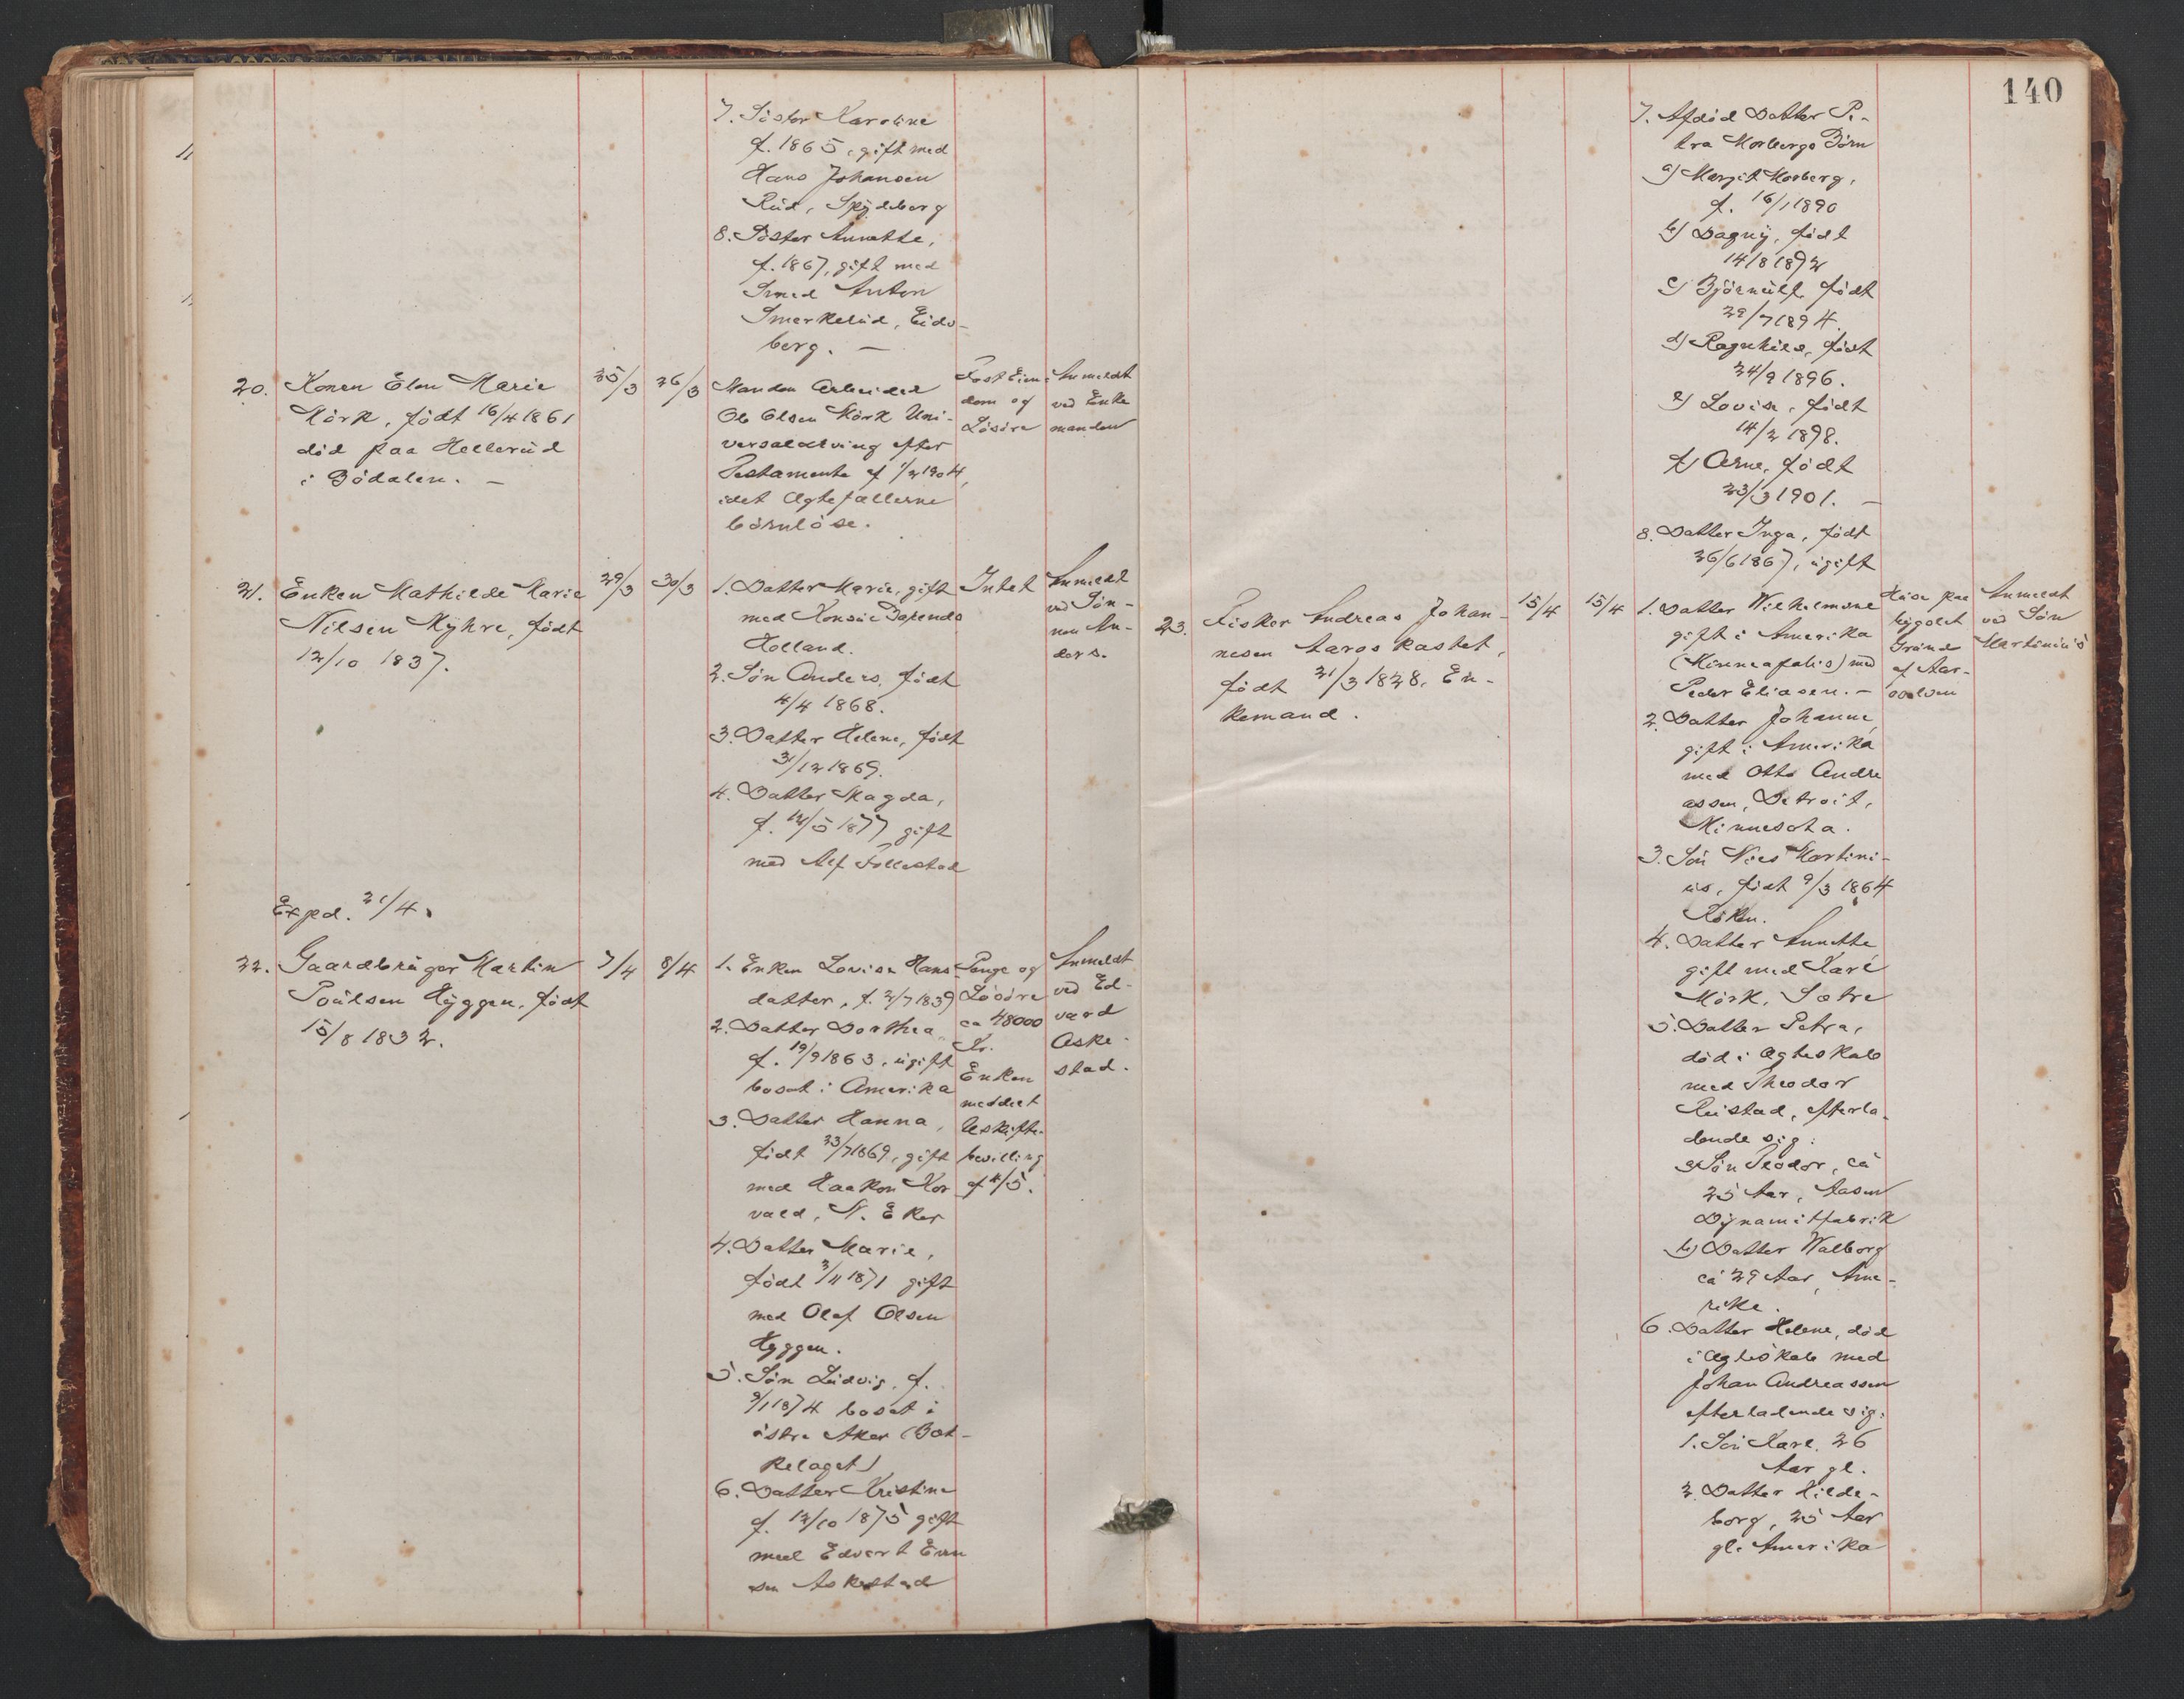 7. Søster Karoline
f. 1865, gift med
Hans Johansen
Rud, Spydeberg
8. Søster Annette,
f. 1867, gift med
Smed Anton
Smerkerud, Eids-
berg. —
20. Konen Elen Marie
Mörk, født 16/4 1861
död paa Hellerud
i Bödalen. —
25/3
26/3
Manden Arbeider
Ole Olsen Mörk Uni-
versalarving efter
Testamente af 1/2 1904,
idet Ægtefællerne
börnlöse.
Fast Eien-
dom og
Lösöre
Anmeldt
ved Enke
manden
21. Enken Mathilde Marie
Nilsen Myhre, födt
12/10 1837.
29/3
30/3
1. Datter Marie, gift
med Konsul Barends
Holland.
2. Sön Anders, födt
4/4 1868.
3. Datter Helene, födt
31/12 1869.
4. Datter Magda,
f. 12/5 1877 gift
med Alf Follestad
Intet
Anmeldt
ved Sön-
nen An-
ders.
Exped. 21/4.
22. Gaardbruger Martin
Poulsen Hyggen, födt
15/8 1832.
7/4
8/4
1. Enken Lovise Hans-
datter, f. 2/7 1839
2. Datter Dorthea
f. 19/9 1863, ugift
bosat i Amerika
3. Datter Hanna,
födt 23/7 1869, gift
med Haakon Hor
vald, N. Eker
4. Datter Marie,
födt 3/11 1871 gift
med Olaf Olsen
Hyggen.
5. Sön Ludvig, f.
9/1 1874 bosat i
östre Aker (Bæk-
kelaget)
6. Datter Kristine
f. 12/10 1875 gift
med Edvart Even
sen Askestad
Penge og
Lösöre
ca 48000
Kr.
Enken
meddelt
Uskifte-
bevilling
af 4/5.
Anmeldt
ved Ed-
vard
Aske-
stad.
140
7. Afdöd Datter Pe-
tra Morbergs Börn
a) Margit Morberg,
f. 16/1 1890
b) Dagny, födt
14/8 1892
c) Björnulf, födt
29/7 1894.
d) Ragnhild, födt
24/9 1896.
e) Lovise, födt
14/2 1898.
f) Arne, födt
23/3 1901. —
8. Datter Inga, födt
26/6 1867, ugift
23. Fisker Andreas Johan-
nesen Aaroskastet,
födt 21/3 1828. En-
kemand.
15/4
15/4
1. Datter Wilhelmine
gift i Amerika
(Minneapolis) med
Peder Eliasen. —
2. Datter Johanne,
gift i Amerika
med Otto Andre
assen, Detroit,
Minnesota.
3. Sön Nils Martini-
us, födt 9/3 1864
Röken.
4. Datter Annette
gift med Karl
Mörk, Sætre
5. Datter Petra,
död i Ægteskab
med Theodor
Ruistad, efterla-
dende sig:
a) Sön Teodor, ca
25 Aar, Aasen
Dynamitfabrik
b) Datter Walborg
ca 29 Aar, Ame-
rika.
6. Datter Helene, död
i Ægteskab med
Johan Andreassen
efterladende sig:
1. Sön Karl 26
Aar gl.
2. Datter Hilde-
borg, 25 Aar
gl. Amerika
Huse paa
bygslet
Grund
af Aar-
oselven
Anmeldt
ved Sön
Martinius